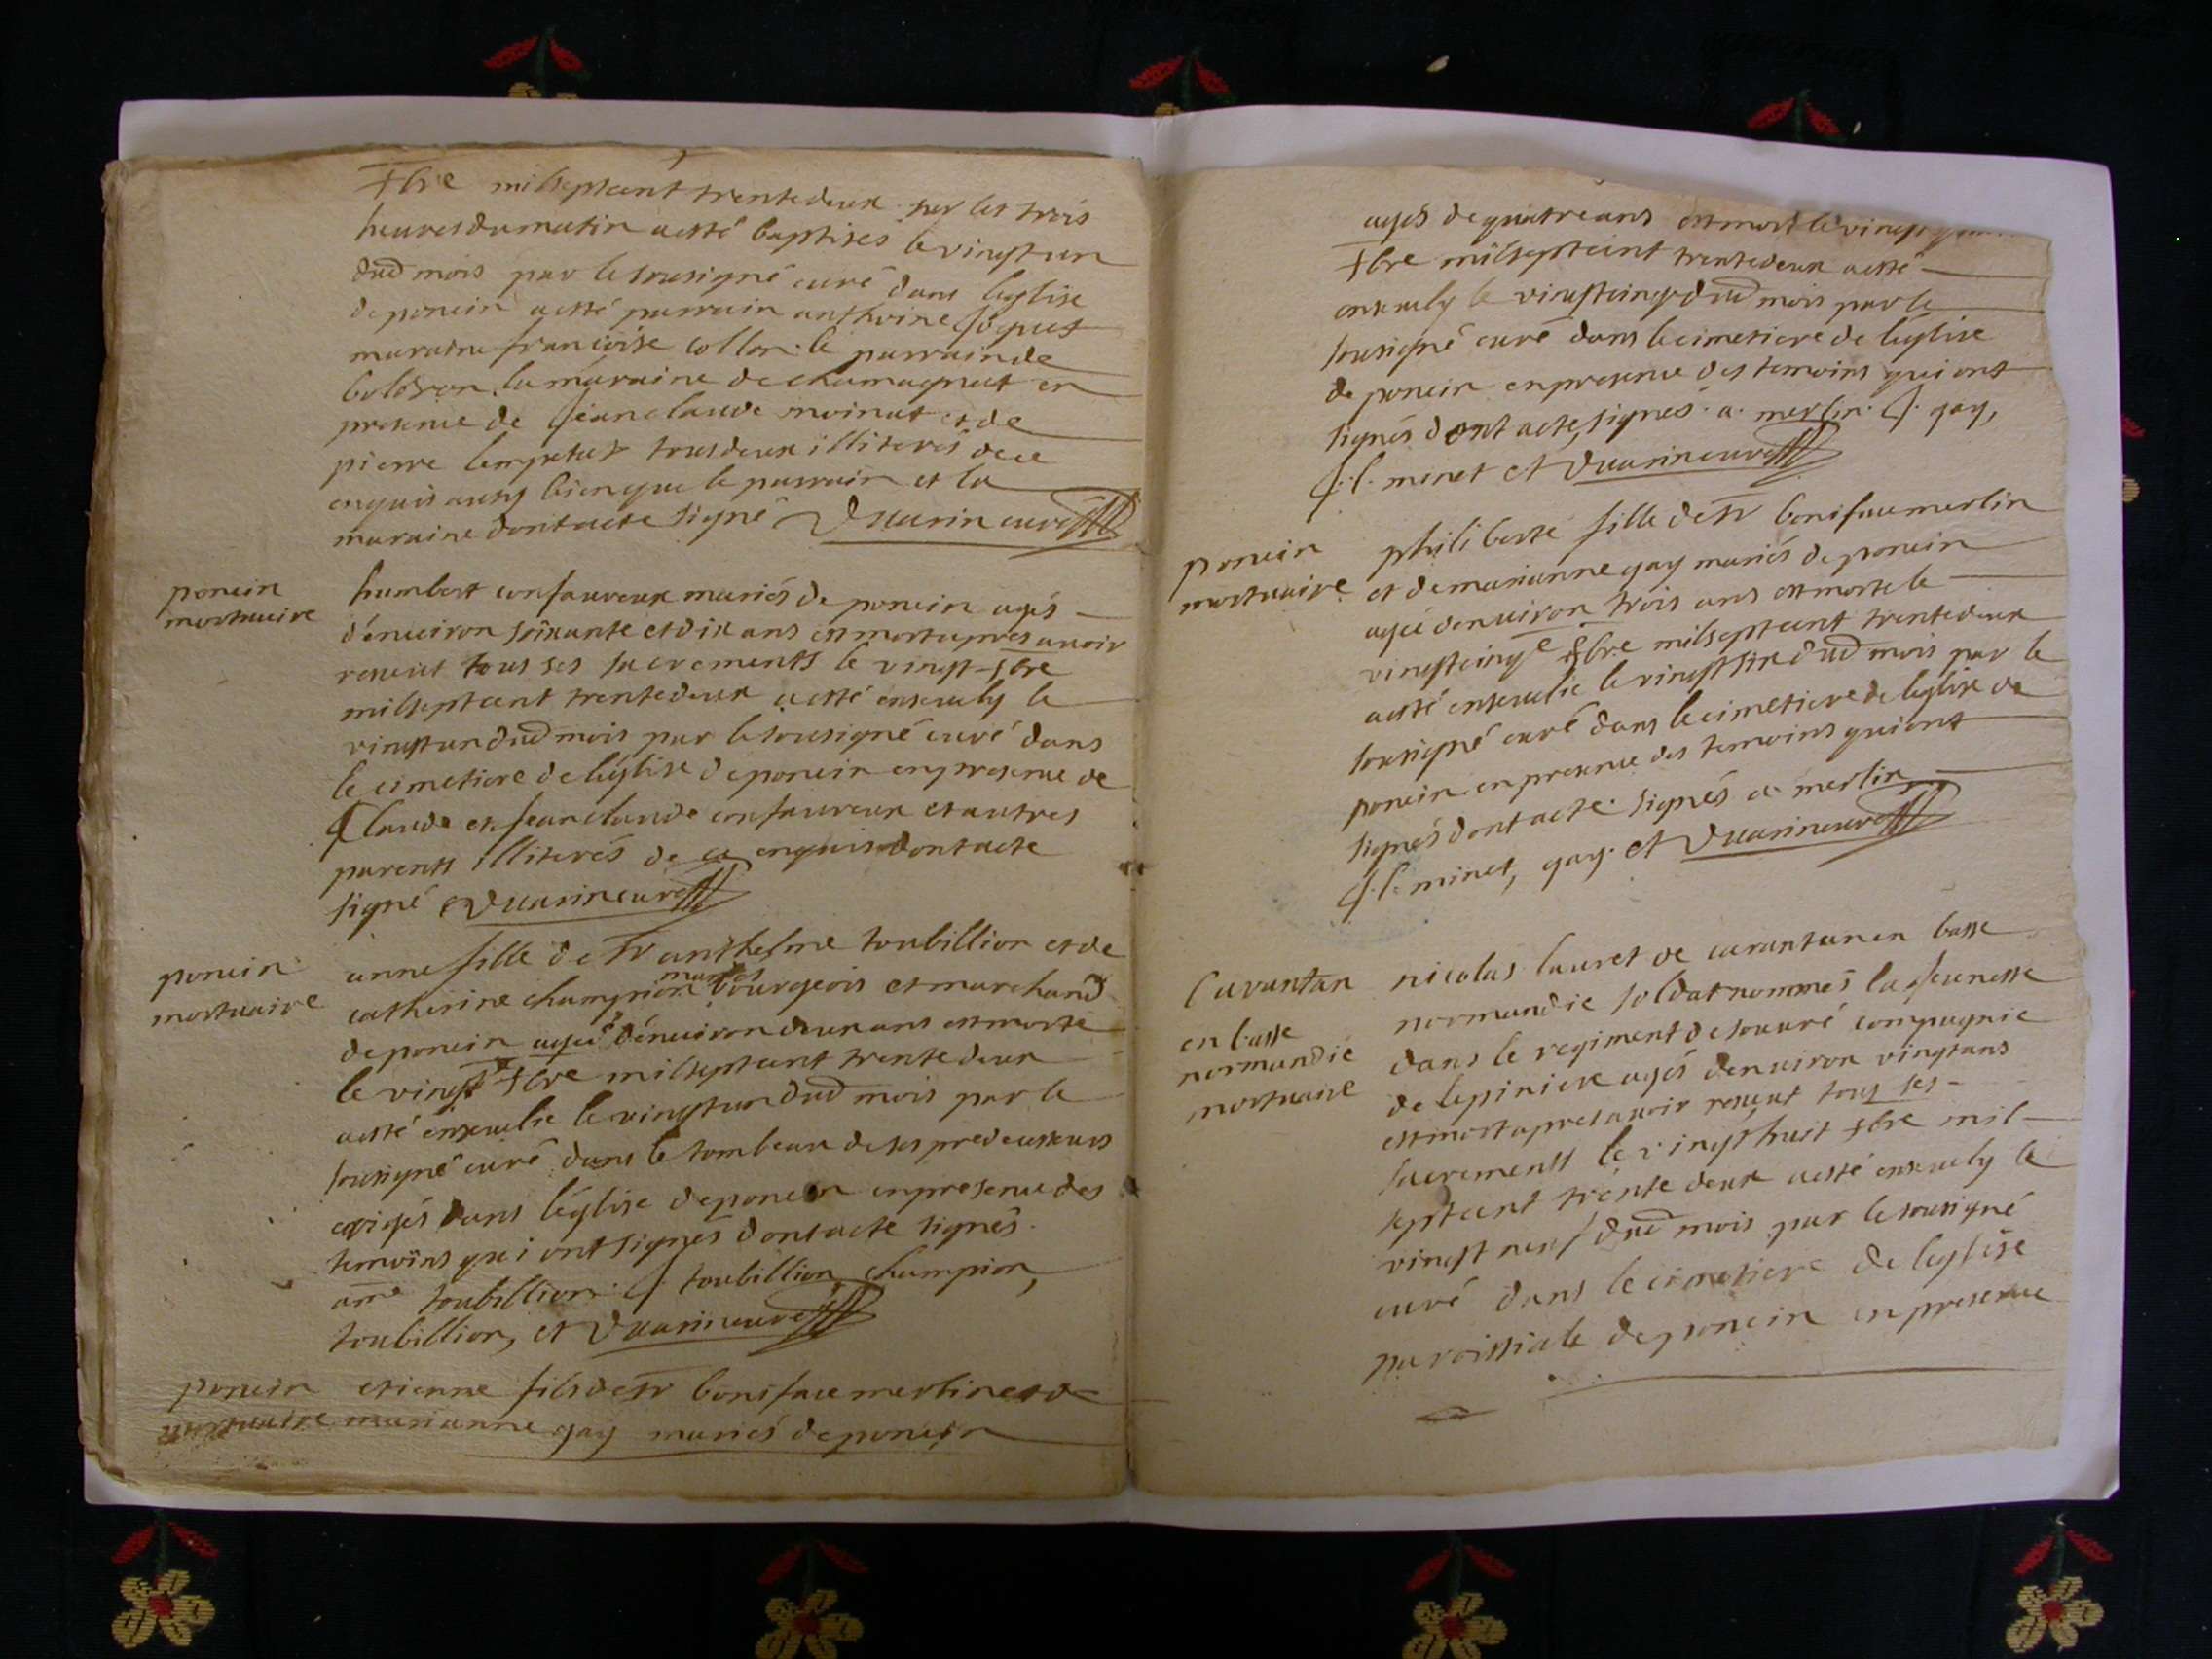 xbre mil septcent trente deux sur les trois
heures du matin a esté baptises le vingt un
dud mois par le sousigné curé dans leglise
de poncin a esté parrain anthoine
maraine francoise collon le parrain de
bolozon la maraine de chamagnat en
presence de jean claude moinat et de
pierre tous deux illiterés de ce
enquis aussy bien que le parrain et la
maraine dont acte signé Vuarin curé
poncin
mortuaire
humbert confavreux mariés de poncin agés
d'environ soixante et dix ans est mort apres avoir
receut tous ses sacrements le vingt xbre
mil septcent trente deux a esté ensevely le
vingt un dud mois par le sousigné curé dans
le cimetiere de léglise de poncin en presence de
Claude et jean claude confavreux et autres
parents illiterés de ce enquis dont acte
signé Vuarin curé
poncin
mortuaire
anne fille de Sr anthelme toubillion et de
catherine champion mariés bourgeois et marchand
de poncin ageé d'environ deux ans est morte
le vingt xbre mil septcent trente deux
a esté ensevelie le vingt un dud mois par le
sousigné curé dans le tombeau de ses predecesseurs
erigés dans léglise de poncin en presence des
temoins qui ont signés dont acte signés
toubillion J toubillion, champion,
toubillion, et Vuarin curé
poncin
mortuaire
etienne fils de Sr boniface merlin et de
marianne gay mariés de poncin
agés de quatre ans est mort le vingt
xbre mil septcent trente deux a esté
ensevely le vingt cinq dud mois par le
sousigné curé dans le cimetiere de léglise
de poncin en presence des temoins qui ont
signés dont acte, signés a. merlin. J. gay,
J. l. minet et Vuarin curé
poncin
mortuaire
philiberte fille de Sr boniface merlin
et de marianne gay mariés de poncin
ageé d'environ trois ans est morte le
vingt cinq e xbre mil septcent trente deux
a esté ensevelie le vingt six dud mois par le
sousigné curé dans le cimetiere de leglise de
poncin en presence des temoins qui ont
signés dont acte signés a merlin
J. l. minet, gay et Vuarin curé
Carantan
en basse
normandie
mortuaire
nicolas lauret de carantan en basse
normandie soldat nommés la jeunesse
dans le regiment de souvré compagnie
de lepiniere agés d'environ vingt ans
est mort apres avoir receut tous ses
sacrements le vingt huit xbre mil
septcent trente deux a esté ensevely le
vingt neuf dud mois par le sousigné
curé dans le cimetiere de leglise
paroissiale de poncin en presence